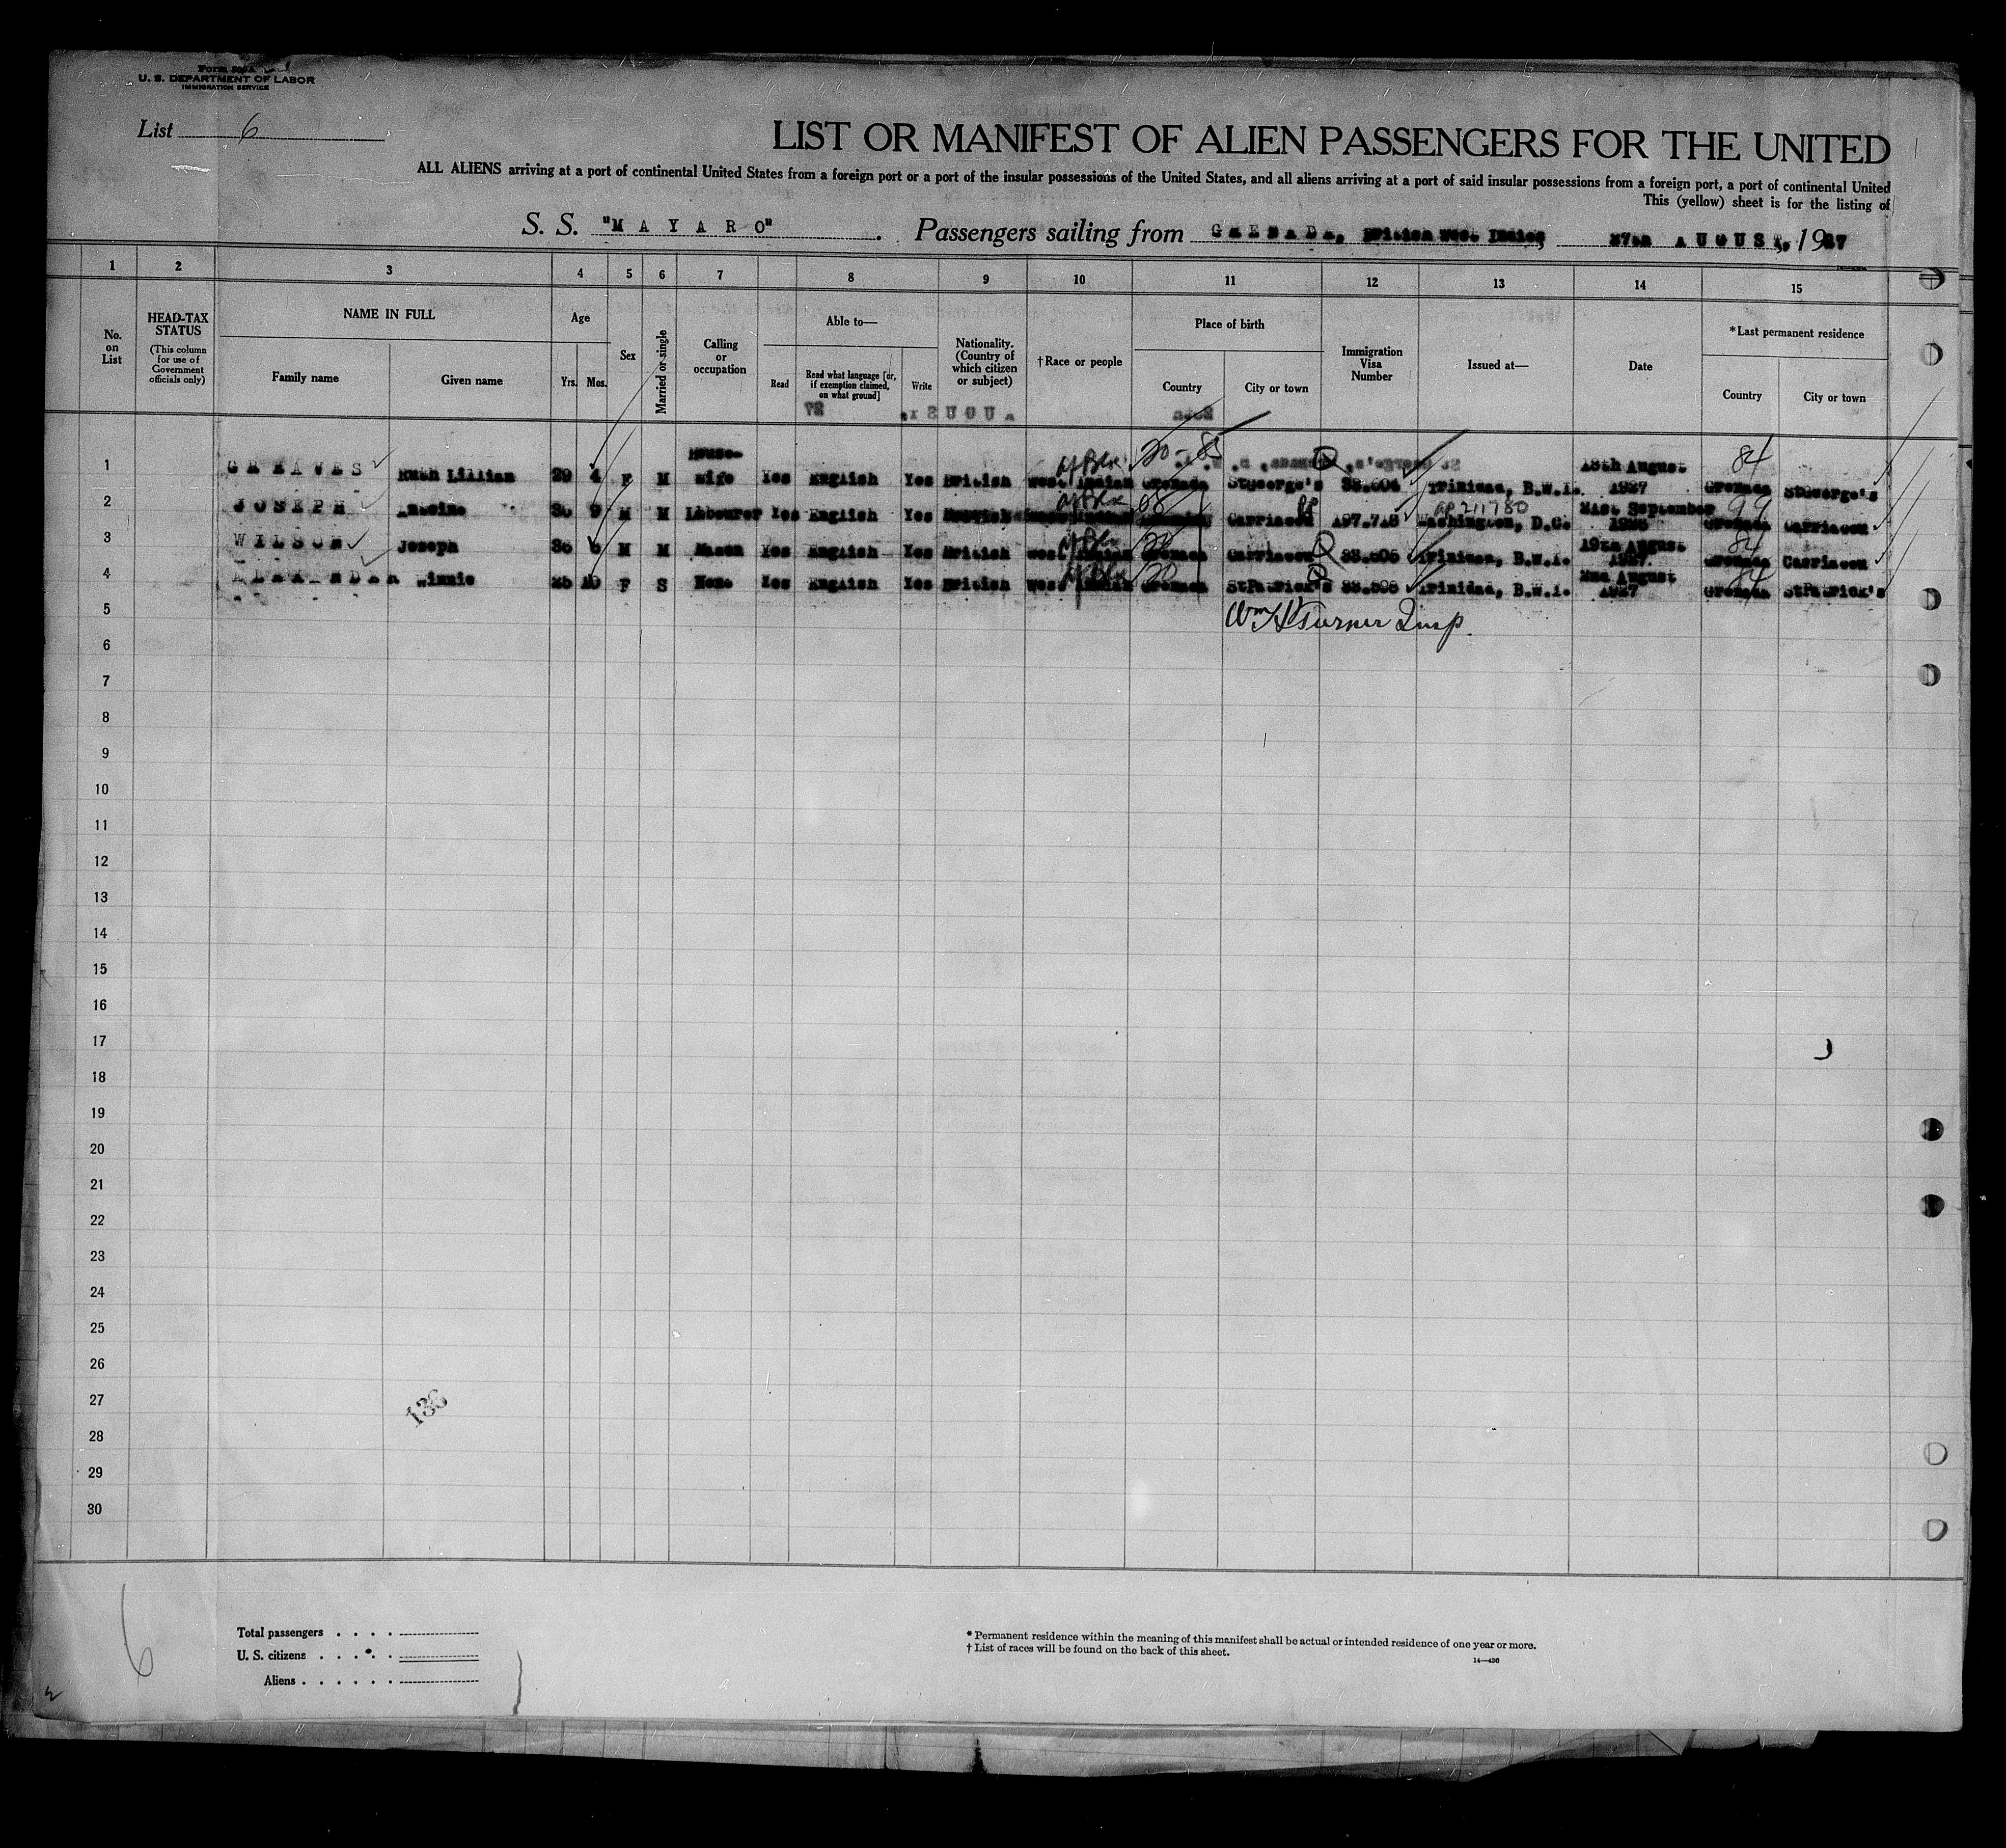 Form 500A
U. S. DEPARTMENT OF LABOR
IMMIGRATION SERVICE
List 6
LIST OR MANIFEST OF ALIEN PASSENGERS FOR THE UNITED
ALL ALIENS arriving at a port of continental United States from a foreign port or a port of the insular possessions of the United States, and all aliens arriving at a port of said insular possessions from a foreign port, a port of continental United
This (yellow) sheet is for the listing of
S. S. "MAYARO". Passengers sailing from GRENADA, British West Indies, 27th AUGUST, 1927
1 2 3 4 5 6 7 8 9 10 11 12 13 14 15
No. on List
HEAD-TAX STATUS
(This column for use of Government officials only)
NAME IN FULL
Family name
Given name
Age
Yrs. Mos.
Sex
Married or single
Calling or occupation
Able to—
Read
Read what language [or, if exemption claimed, on what ground]
Write
Nationality. (Country of which citizen or subject)
†Race or people
Place of birth
Country
City or town
Immigration Visa Number
Issued at—
Date
*Last permanent residence
Country
City or town
1 GREAVES Ruth Lillian 29 4 F M House-wife Yes English Yes British West Indian Grenada StGeorge's Trinidad, B.W.I. August 1927 Grenada StGeorge's
20-85
84
2 JOSEPH 9 M M Labourer Yes English Yes Carriacou Washington, D.C. 21st September Grenada Carriacou
AP 211780
99
3 WILSON Joseph M M Mason Yes English Yes British West Indian Grenada Carriacou Trinidad, B.W.I. 19th August 1927. Grenada Carriacou
20
84
4 ALEXANDER Winnie 10 F S None Yes English Yes British West Indian Grenada StPatrick's Trinidad, B.W.I. 2nd August 1927 Grenada StPatrick's
20
84
5 Wm H Turner Insp.
6
7
8
9
10
11
12
13
14
15
16
17
18
19
20
21
22
23
24
25
26
27
28
29
30
138
6
Total passengers . . . .
U. S. citizens . . . . .
Aliens . . . . . .
* Permanent residence within the meaning of this manifest shall be actual or intended residence of one year or more.
† List of races will be found on the back of this sheet.
14—436